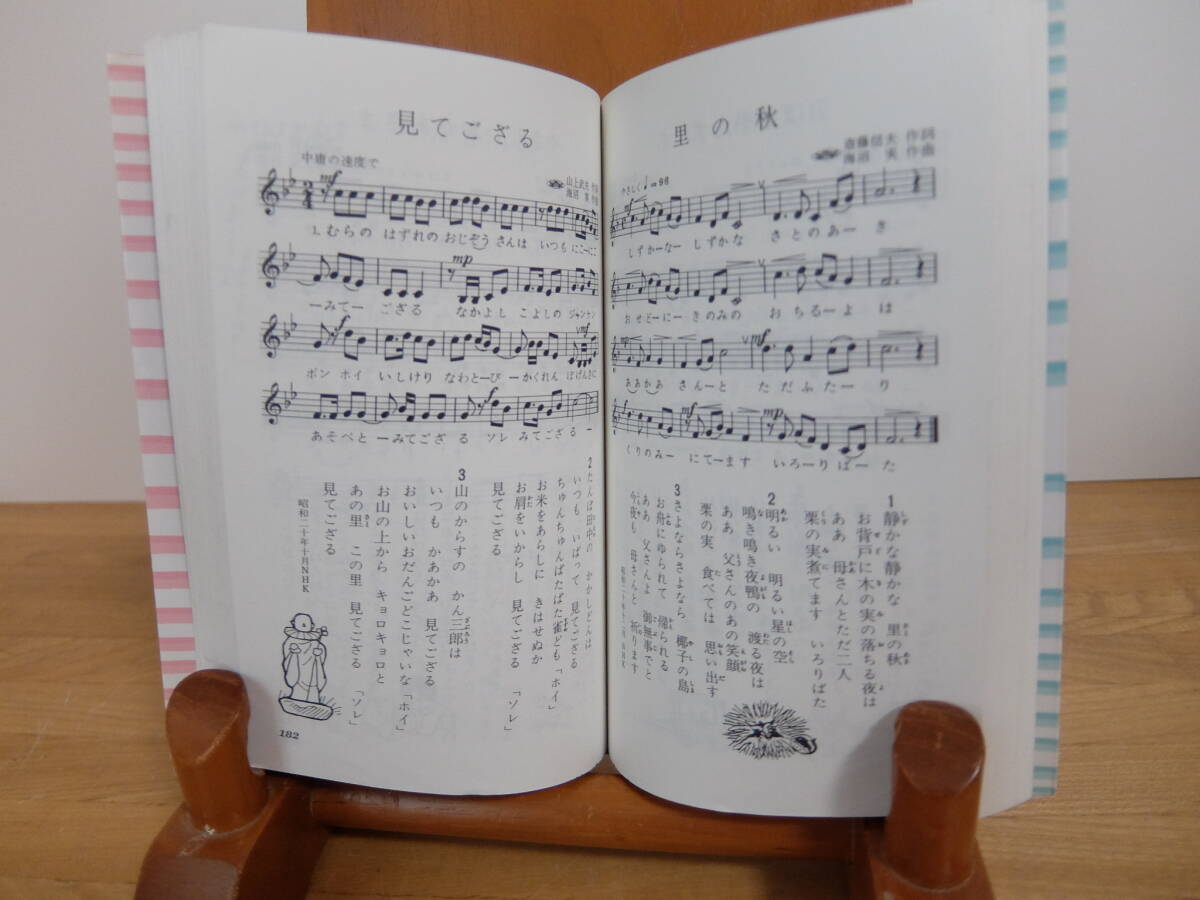 見てござる
中庸の速度で
山上武夫 作詞
海沼 実 作曲
mf
1.むらの はずれの おじぞう さんは いつも にこーにこ
mp
ーみてー ござる なかよし こよしの ジャンケン
f
mf
ポン ホイ いしけり なわとーび ーかくれん ぼげんきに
f
あそべと ーみてござ る ソレ みてござる ー
2
たんぼ田中の かかしどんは
いつも いばって 見てござる
ちゅんちゅんぱたぱた雀ども「ホイ」
お米をあらしに きはせぬか
お肩をいからし 見てござる 「ソレ」
見てござる
3
山のからすの かん三郎は
いつも かあかあ 見てござる
おいしいおだんごどこじゃいな「ホイ」
お山の上から キョロキョロと
あの里 この里 見てござる 「ソレ」
見てござる
昭和二十年十月NHK
182
里の秋
斎藤信夫 作詞
海沼 実 作曲
やさしく ♩=96
mf
しずかーなー しずかな さとのあーき
おせどーにー きのみの おちるーよは
mp
mf
ああかあ さんーと ただふたーり
mf
mp
くりのみー にてーます いろーりばーた
1
静かな静かな 里の秋
お背戸に木の実の落ちる夜は
ああ 母さんとただ二人
栗の実煮てます いろりばた
2
明るい 明るい星の空
鳴き鳴き夜鴨の 渡る夜は
ああ 父さんのあの笑顔
栗の実 食べては 思い出す
3
さよならさよなら 椰子の島
お舟にゆられて 帰られる
ああ 父さんよ 御無事でと
今夜も 母さんと 祈ります